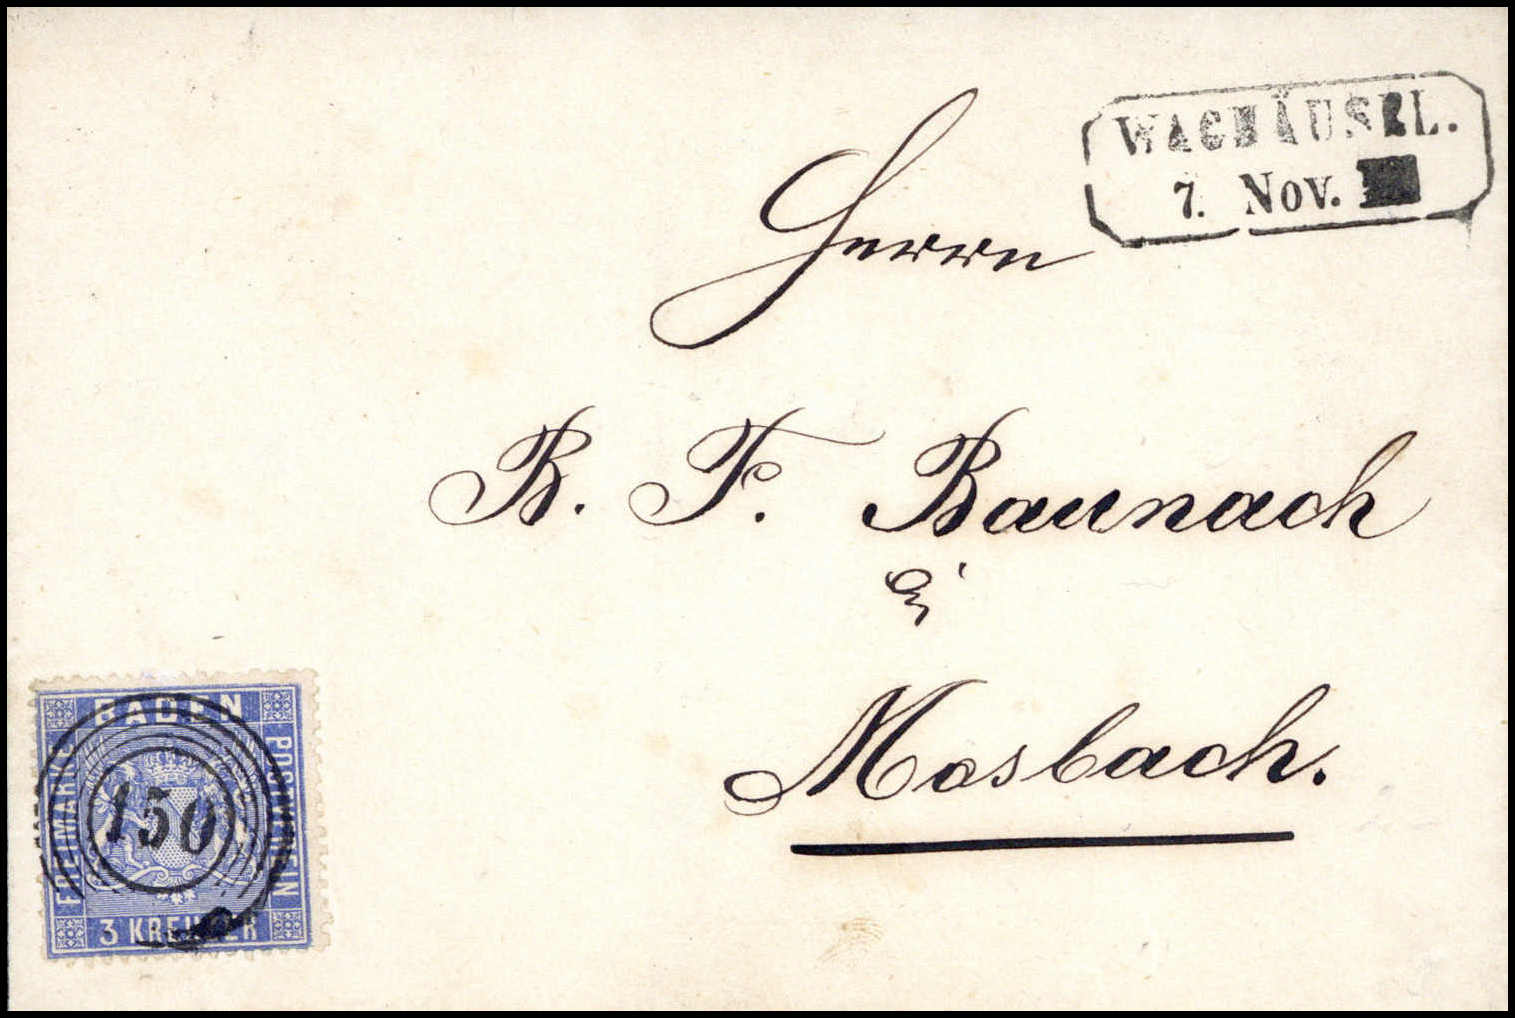 WAGHÄUSEL.
7. Nov.
Herrn
B. F. Baunach
Mosbach.
BADEN
FREIMARKE
POSTVEREIN
150
3 KREUZER